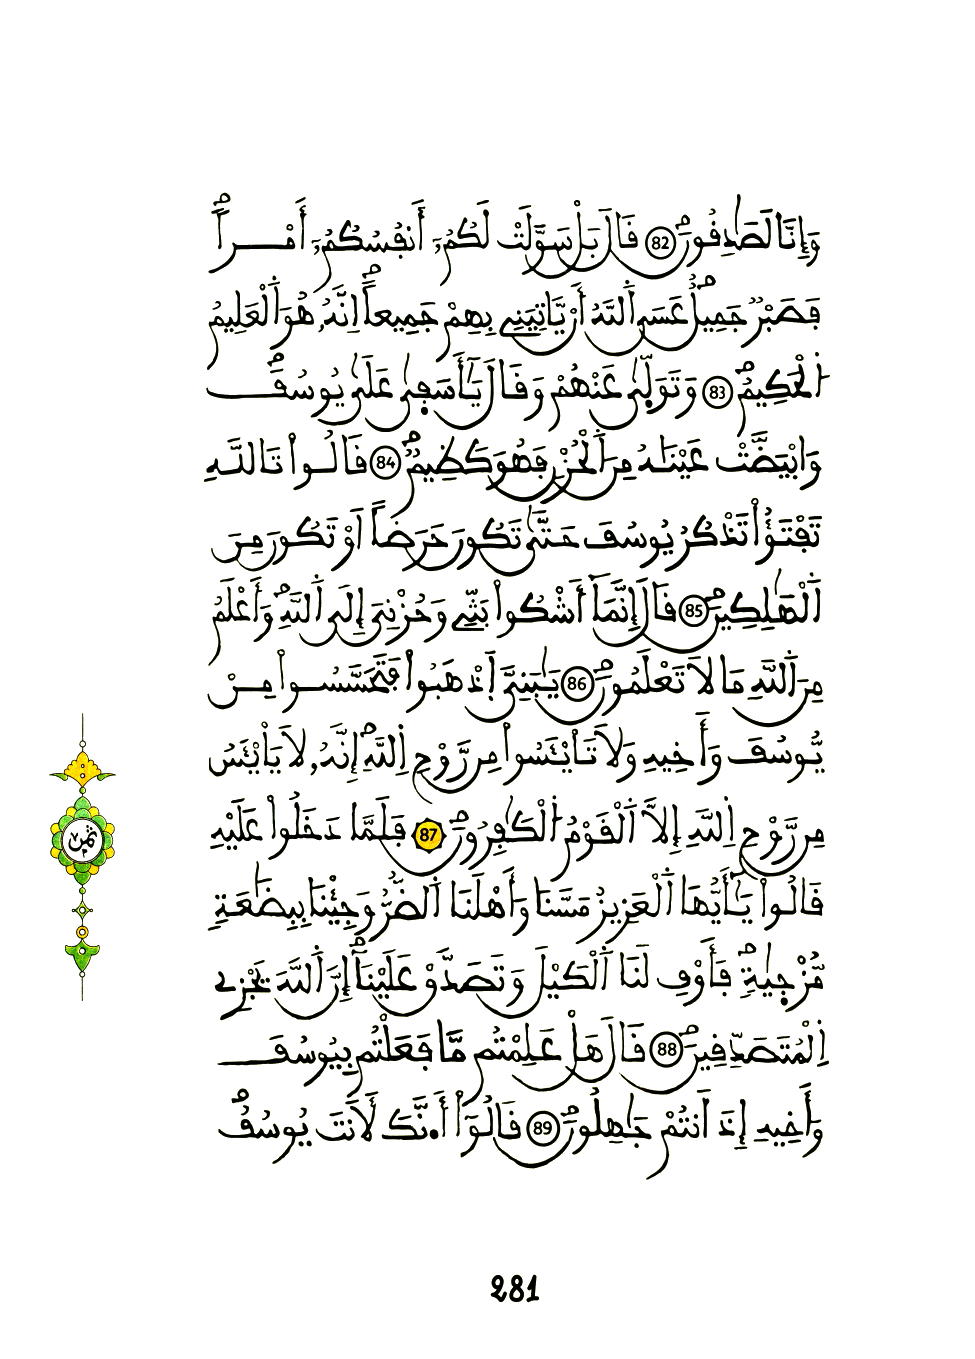 وَإِنَّا لَصَٰدِقُونَۖ 82 قَالَ بَلْ سَوَّلَتْ لَكُمُۥٓ أَنفُسُكُمُۥٓ أَمْراٗۖ
فَصَبْرٞ جَمِيلٌۖ عَسَى اَ۬للَّهُ أَنْ يَّاتِيَنِے بِهِمْ جَمِيعاًۖ اِنَّهُۥ هُوَ اَ۬لْعَلِيمُ
اُ۬لْحَكِيمُۖ 83 وَتَوَلّ۪يٰ عَنْهُمْ وَقَالَ يَٰٓأَسَف۪يٰ عَلَيٰ يُوسُفَۖ
وَابْيَضَّتْ عَيْنَٰهُ مِنَ اَ۬لْحُزْنِ فَهُوَ كَظِيمٞۖ 84 قَالُواْ تَاللَّهِ
تَفْتَؤُاْ تَذْكُرُ يُوسُفَ حَتَّيٰ تَكُونَ حَرَضاً اَوْ تَكُونَ مِنَ
اَ۬لْهَٰلِكِينَۖ 85 قَالَ إِنَّمَآ أَشْكُواْ بَثِّے وَحُزْنِيَ إِلَي اَ۬للَّهِۖ وَأَعْلَمُ
مِنَ اَ۬للَّهِ مَا لَا تَعْلَمُونَۖ 86 يَٰبَنِيَّ اَ۪ذْهَبُواْ فَتَحَسَّسُواْ مِنْ
يُّوسُفَ وَأَخِيهِ وَلَا تَاْيْـَٔسُواْ مِن رَّوْحِ اِ۬للَّهِۖ إِنَّهُۥ لَا يَاْيْـَٔسُ
مِن رَّوْحِ اِ۬للَّهِ إِلَّا اَ۬لْقَوْمُ اُ۬لْكَٰفِرُونَۖ 87 فَلَمَّا دَخَلُواْ عَلَيْهِ
قَالُواْ يَٰٓأَيُّهَا اَ۬لْعَزِيزُ مَسَّنَا وَأَهْلَنَا اَ۬لضُّرُّ وَجِئْنَا بِبِضَٰعَةٖ
مُّزْج۪يٰةٖۖ فَأَوْفِ لَنَا اَ۬لْكَيْلَ وَتَصَدَّقْ عَلَيْنَآۖ إِنَّ اَ۬للَّهَ يَجْزِے
اِ۬لْمُتَصَدِّقِينَۖ 88 قَالَ هَلْ عَلِمْتُم مَّا فَعَلْتُم بِيُوسُفَ
وَأَخِيهِ إِذَ اَنتُمْ جَٰهِلُونَۖ 89 قَالُوٓاْ أَ.نَّكَ لَأَنتَ يُوسُفُۖ
ثمن
281